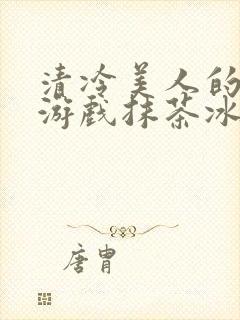 清冷美人的
游戏抹茶冰
唐胄